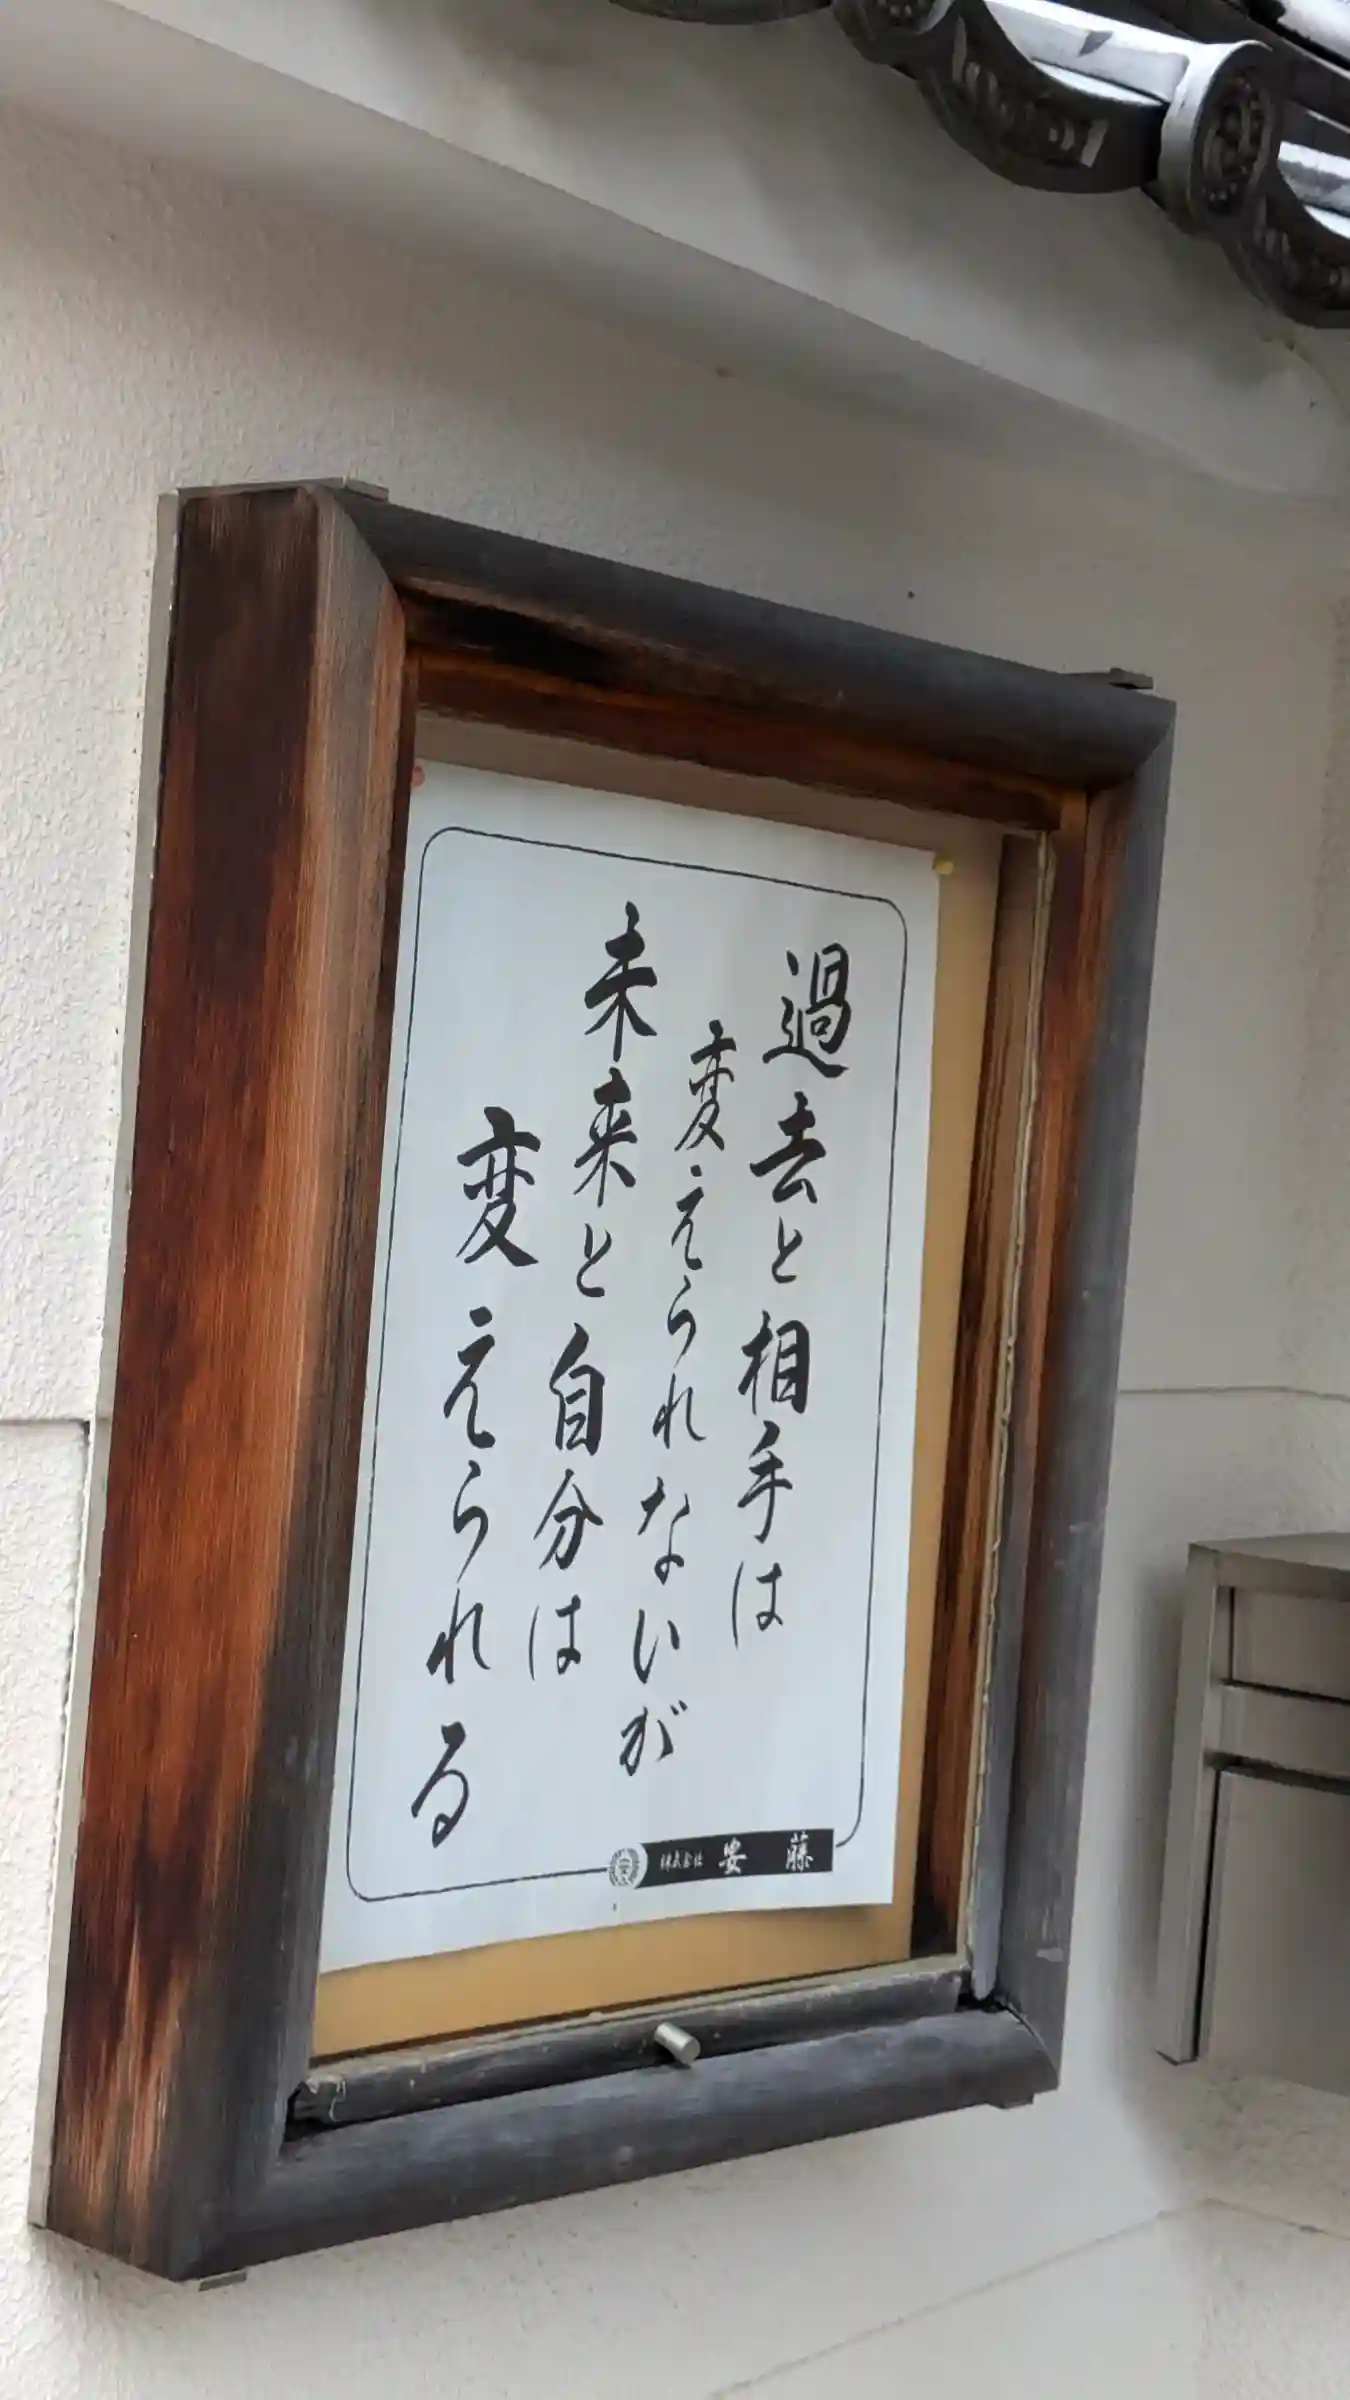 過去と相手は
変えられないが
未来と自分は
変えられる
株式会社 安藤